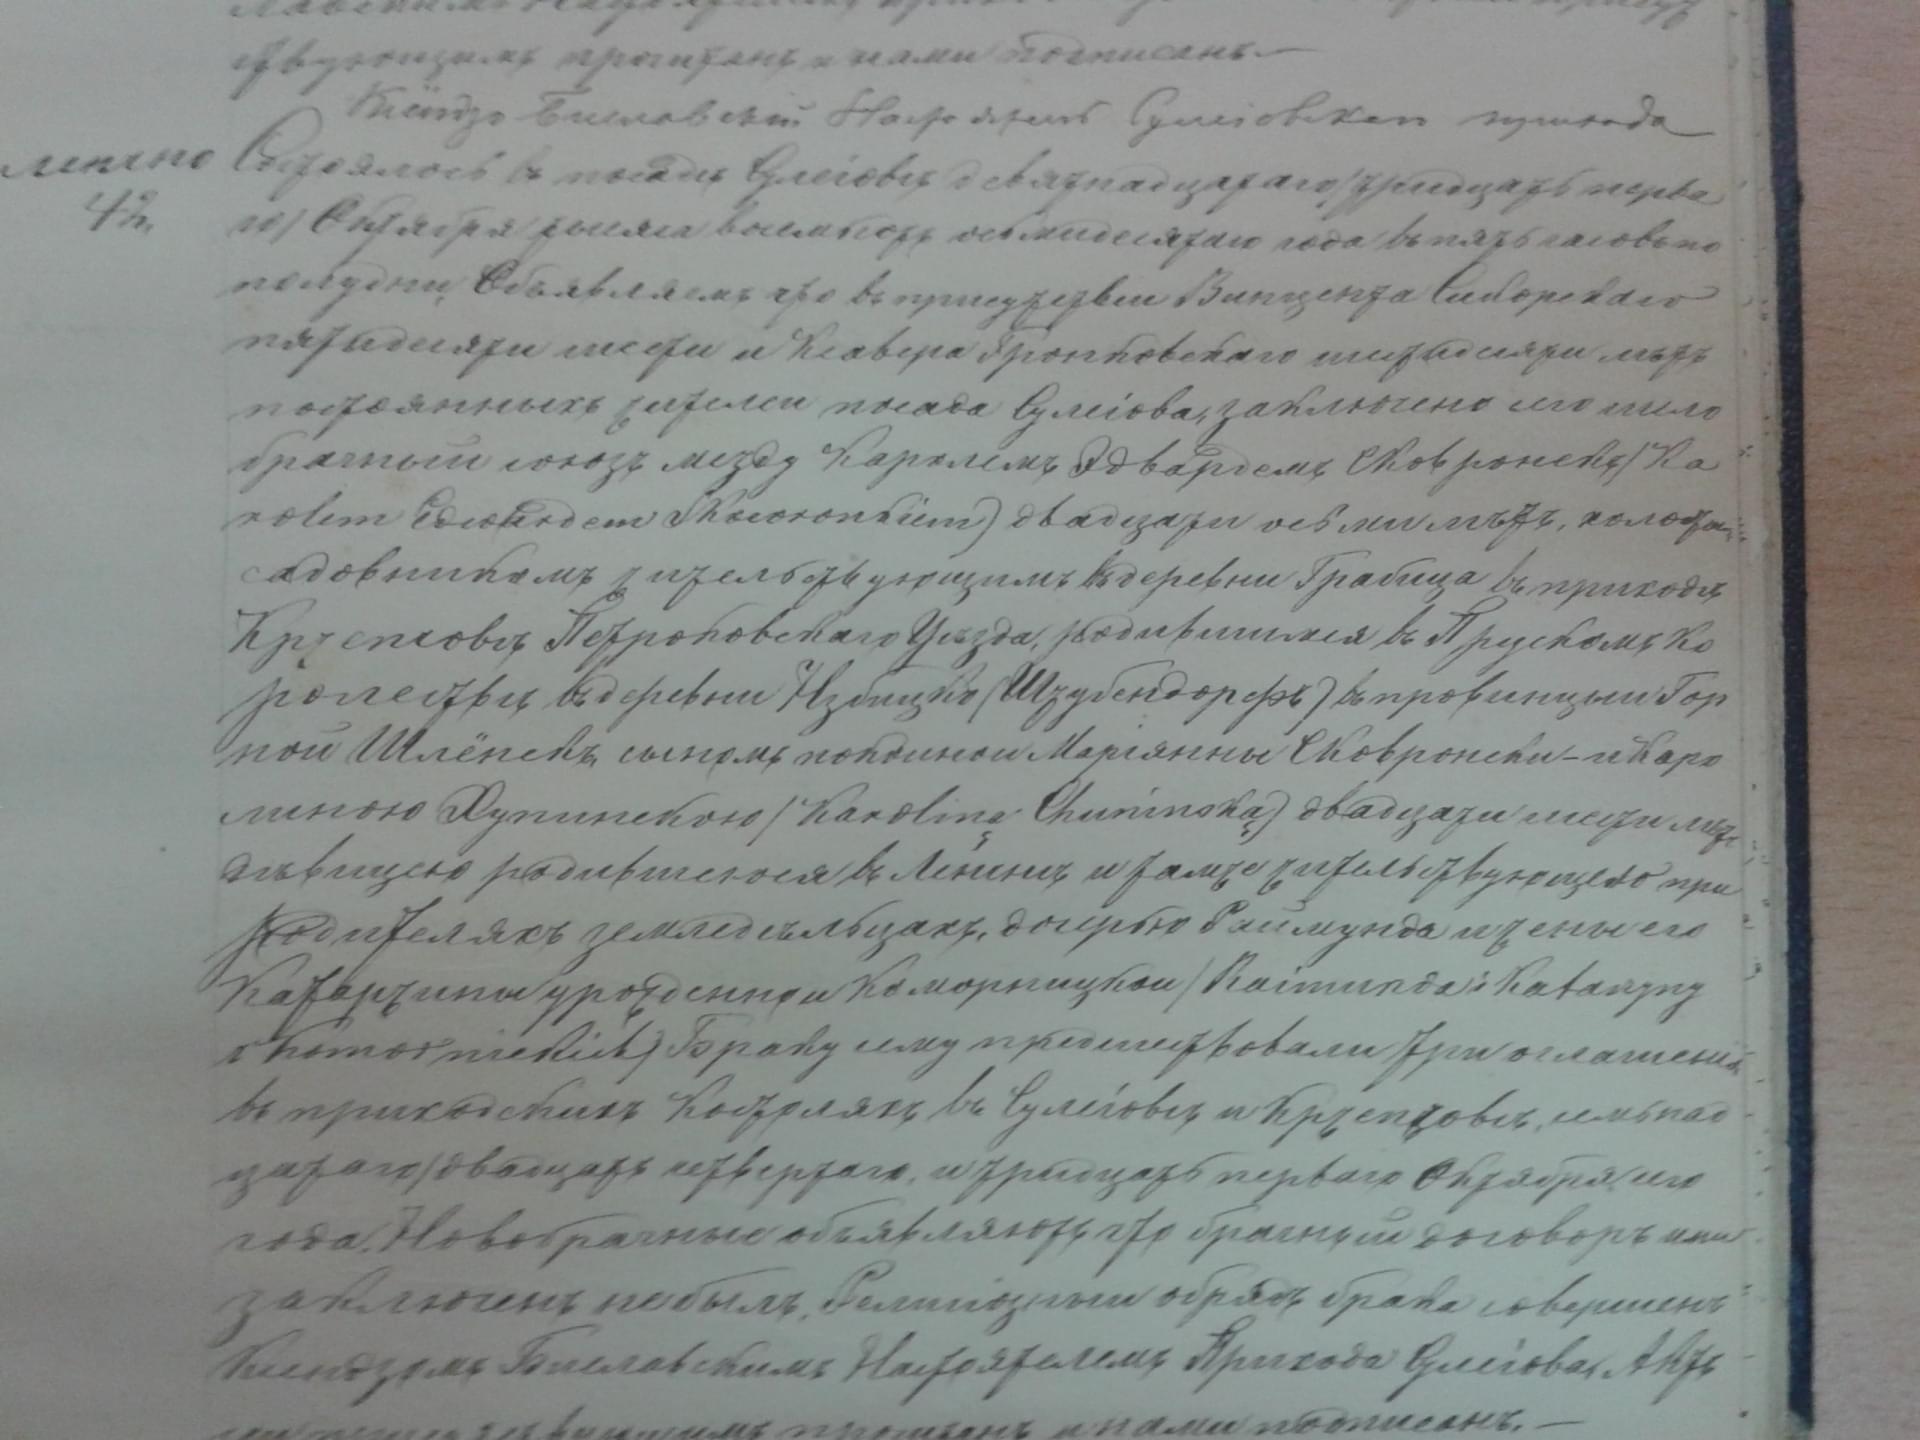 ствующимъ прочитанъ и нами подписанъ.—
Ксёндзъ Настоятель Сулеіовскаго прихода
Состоялось въ посадѣ Сулеіовѣ девятнадцатаго/тридцать перва
42.
го/ Октября тысяча восемьсотъ восьмидесятаго года въ пять часовъ по
полудни. Объявляемъ что въ присутствіи Винцента Сикорскаго
пятидесяти шести и Ксавера Бронковскаго шестидесяти лѣтъ
постоянныхъ жителей посада Сулеіова, заключено сего числа
брачный союзъ между Каролемъ Эдвардемъ Сковронекъ/Ka
rolem Edwardem Skowronkiem) двадцати осьми лѣтъ, холостымъ
садовникомъ жительствующимъ въ деревни Грабица въ приходѣ
Кржепчовѣ Петроковскаго Уѣзда, родившимся въ Прускомъ Ко
ролествѣ въ деревни Избицко (Шзубендорфъ) въ провинцыи Гор
ной Шлёнскъ сыномъ покойной Маріянны Сковронски – и Каро
линою Хунинскою/Karoliną Chunińską) двадцати шести лѣтъ
дѣвицею родившеюся въ Ленчнѣ и тамже жительствующею при
родителяхъ земледѣльцахъ, дочерью Раймунда и жены его
Катаржины урожденной Коморницкой/Raimunda i Katarzyny
z Komornickich) Браку сему предшествовали три оглашенія
въ приходскихъ костелахъ въ Сулеіовѣ и Кржепчовѣ, семнад
цатаго/двадцать четвертаго, и тридцать перваго Октября сего
года. Новобрачные объявляютъ что брачный договоръ ими
заключенъ не былъ. Религіозный обрядъ брака совершенъ
Ксендзомъ Настоятелемъ Прихода Сулеіова. Актъ
прочитанъ и нами подписанъ.—